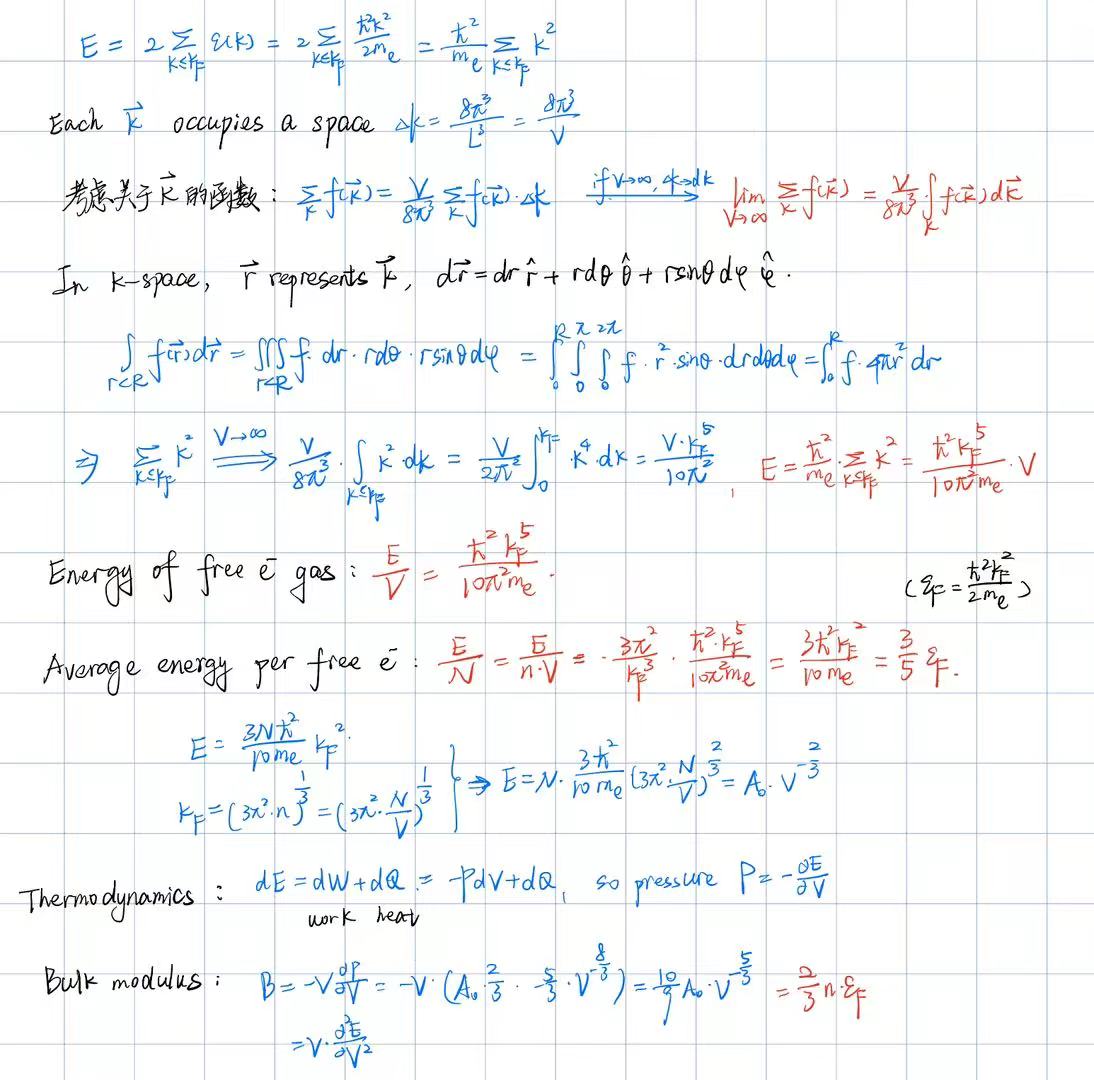 E = 2 ∑_{k≤k_F} ε(k) = 2 ∑_{k≤k_F} ħ²k²/2mₑ = ħ²/mₑ ∑_{k≤k_F} k²
Each k⃗ occupies a space Δk = 8π³/L³ = 8π³/V
考虑关于k⃗的函数: ∑_k f(k⃗) = V/8π³ ∑_k f(k⃗)·Δk if V→∞, Δk→dk lim_{V→∞} ∑_k f(k⃗) = V/8π³ ∫_k f(k⃗)dk⃗
In k-space, r⃗ represents k⃗, dr⃗ = dr r̂ + rdθ θ̂ + rsinθdφ φ̂.
∫_{r<R} f(r⃗)dr⃗ = ∭_{r<R} f·dr·rdθ·rsinθdφ = ∫₀^R ∫₀^π ∫₀^{2π} f·r²·sinθ·drdθdφ = ∫₀^R f·4πr² dr
⇒ ∑_{k≤k_F} k² ⟹^{V→∞} V/8π³ · ∫_{k≤k_F} k²·dk = V/2π² ∫₀^{k_F} ·k⁴·dk = V·k_F⁵/10π², E = ħ²/mₑ · ∑_{k≤k_F} k² = ħ²k_F⁵/10π²mₑ · V
Energy of free e⁻ gas: E/V = ħ²k_F⁵/10π²mₑ. (ε_F = ħ²k_F²/2mₑ)
Average energy per free e⁻: E/N = E/n·V = ·3π²/k_F³ · ħ²·k_F⁵/10π²mₑ = 3ħ²k_F²/10mₑ = 3/5 ε_F.
E = 3Nħ²/10mₑ k_F².
k_F = (3π²·n)^{1/3} = (3π²·N/V)^{1/3} } ⇒ E = N·3ħ²/10mₑ (3π²·N/V)^{2/3} = A₀·V^{-2/3}
Thermodynamics: dE = dW + dQ = -PdV + dQ, so pressure P = -∂E/∂V
work heat
Bulk modulus: B = -V ∂P/∂V = -V·(A₀·2/3·-5/3·V^{-8/3}) = 10/9 A₀·V^{-5/3} = 2/3 n·ε_F
= V·∂²E/∂V²